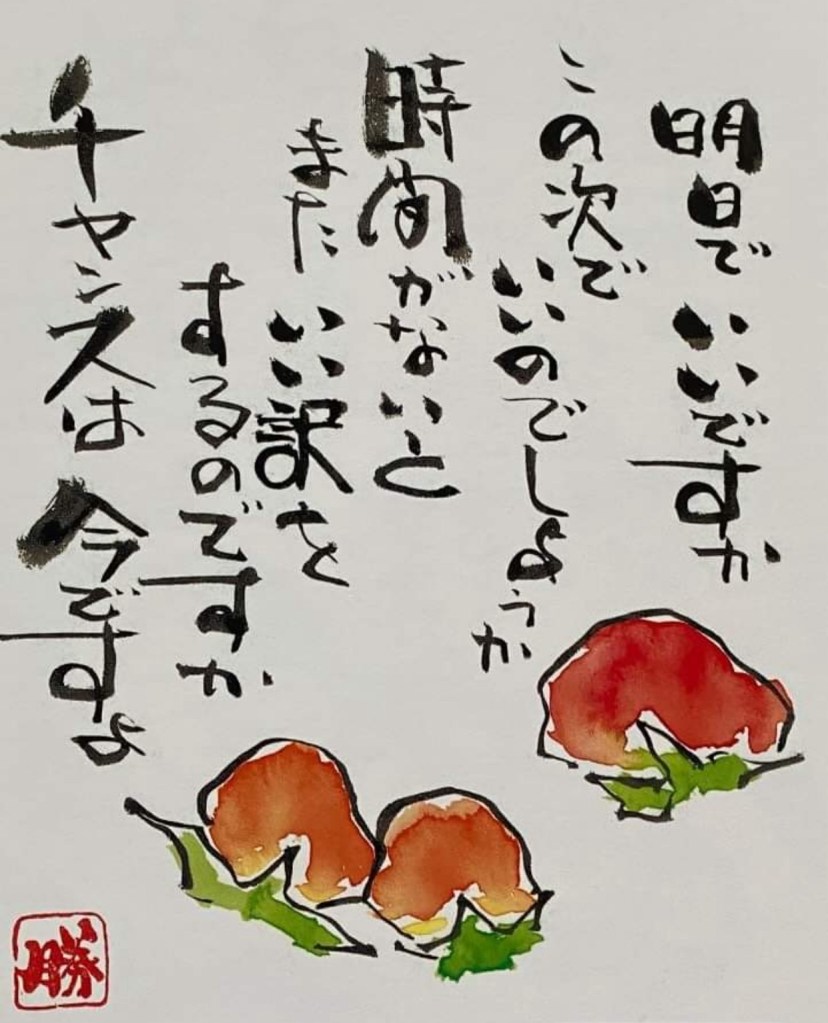 明日でいいですか
この次で
いいのでしょうか
時間がないと
また いい訳を
するのですか
チャンスは 今ですよ
勝